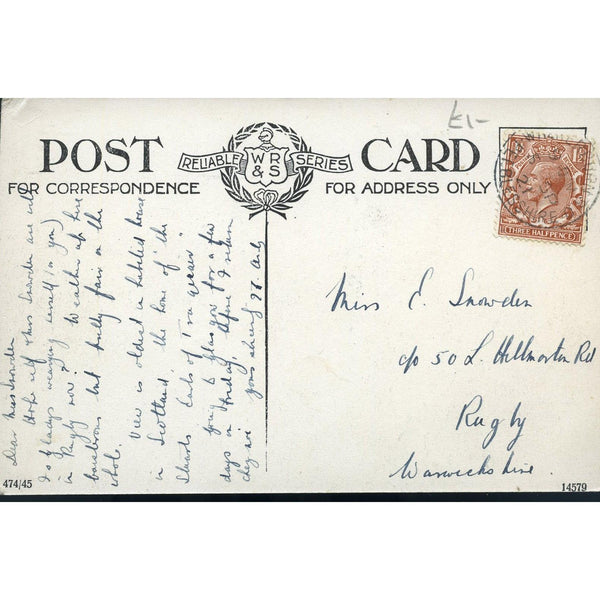 £1-
POST CARD
RELIABLE WR&S SERIES
FOR CORRESPONDENCE
FOR ADDRESS ONLY
THREE HALFPENCE
Dear Miss Snowden
Hope self & Miss Snowden are well
in Rugby now. Weather up here
but fully fair on the
whole.
View is oldest inhabited house
in Scotland, the home of the
Stuarts Earls of Traquair
going to Glasgow for a few
days on Friday, before I return
yours sincerely
Miss E. Snowden
c/o 50 L. Hillmorton Rd
Rugby
Warwickshire.
474/45
14579